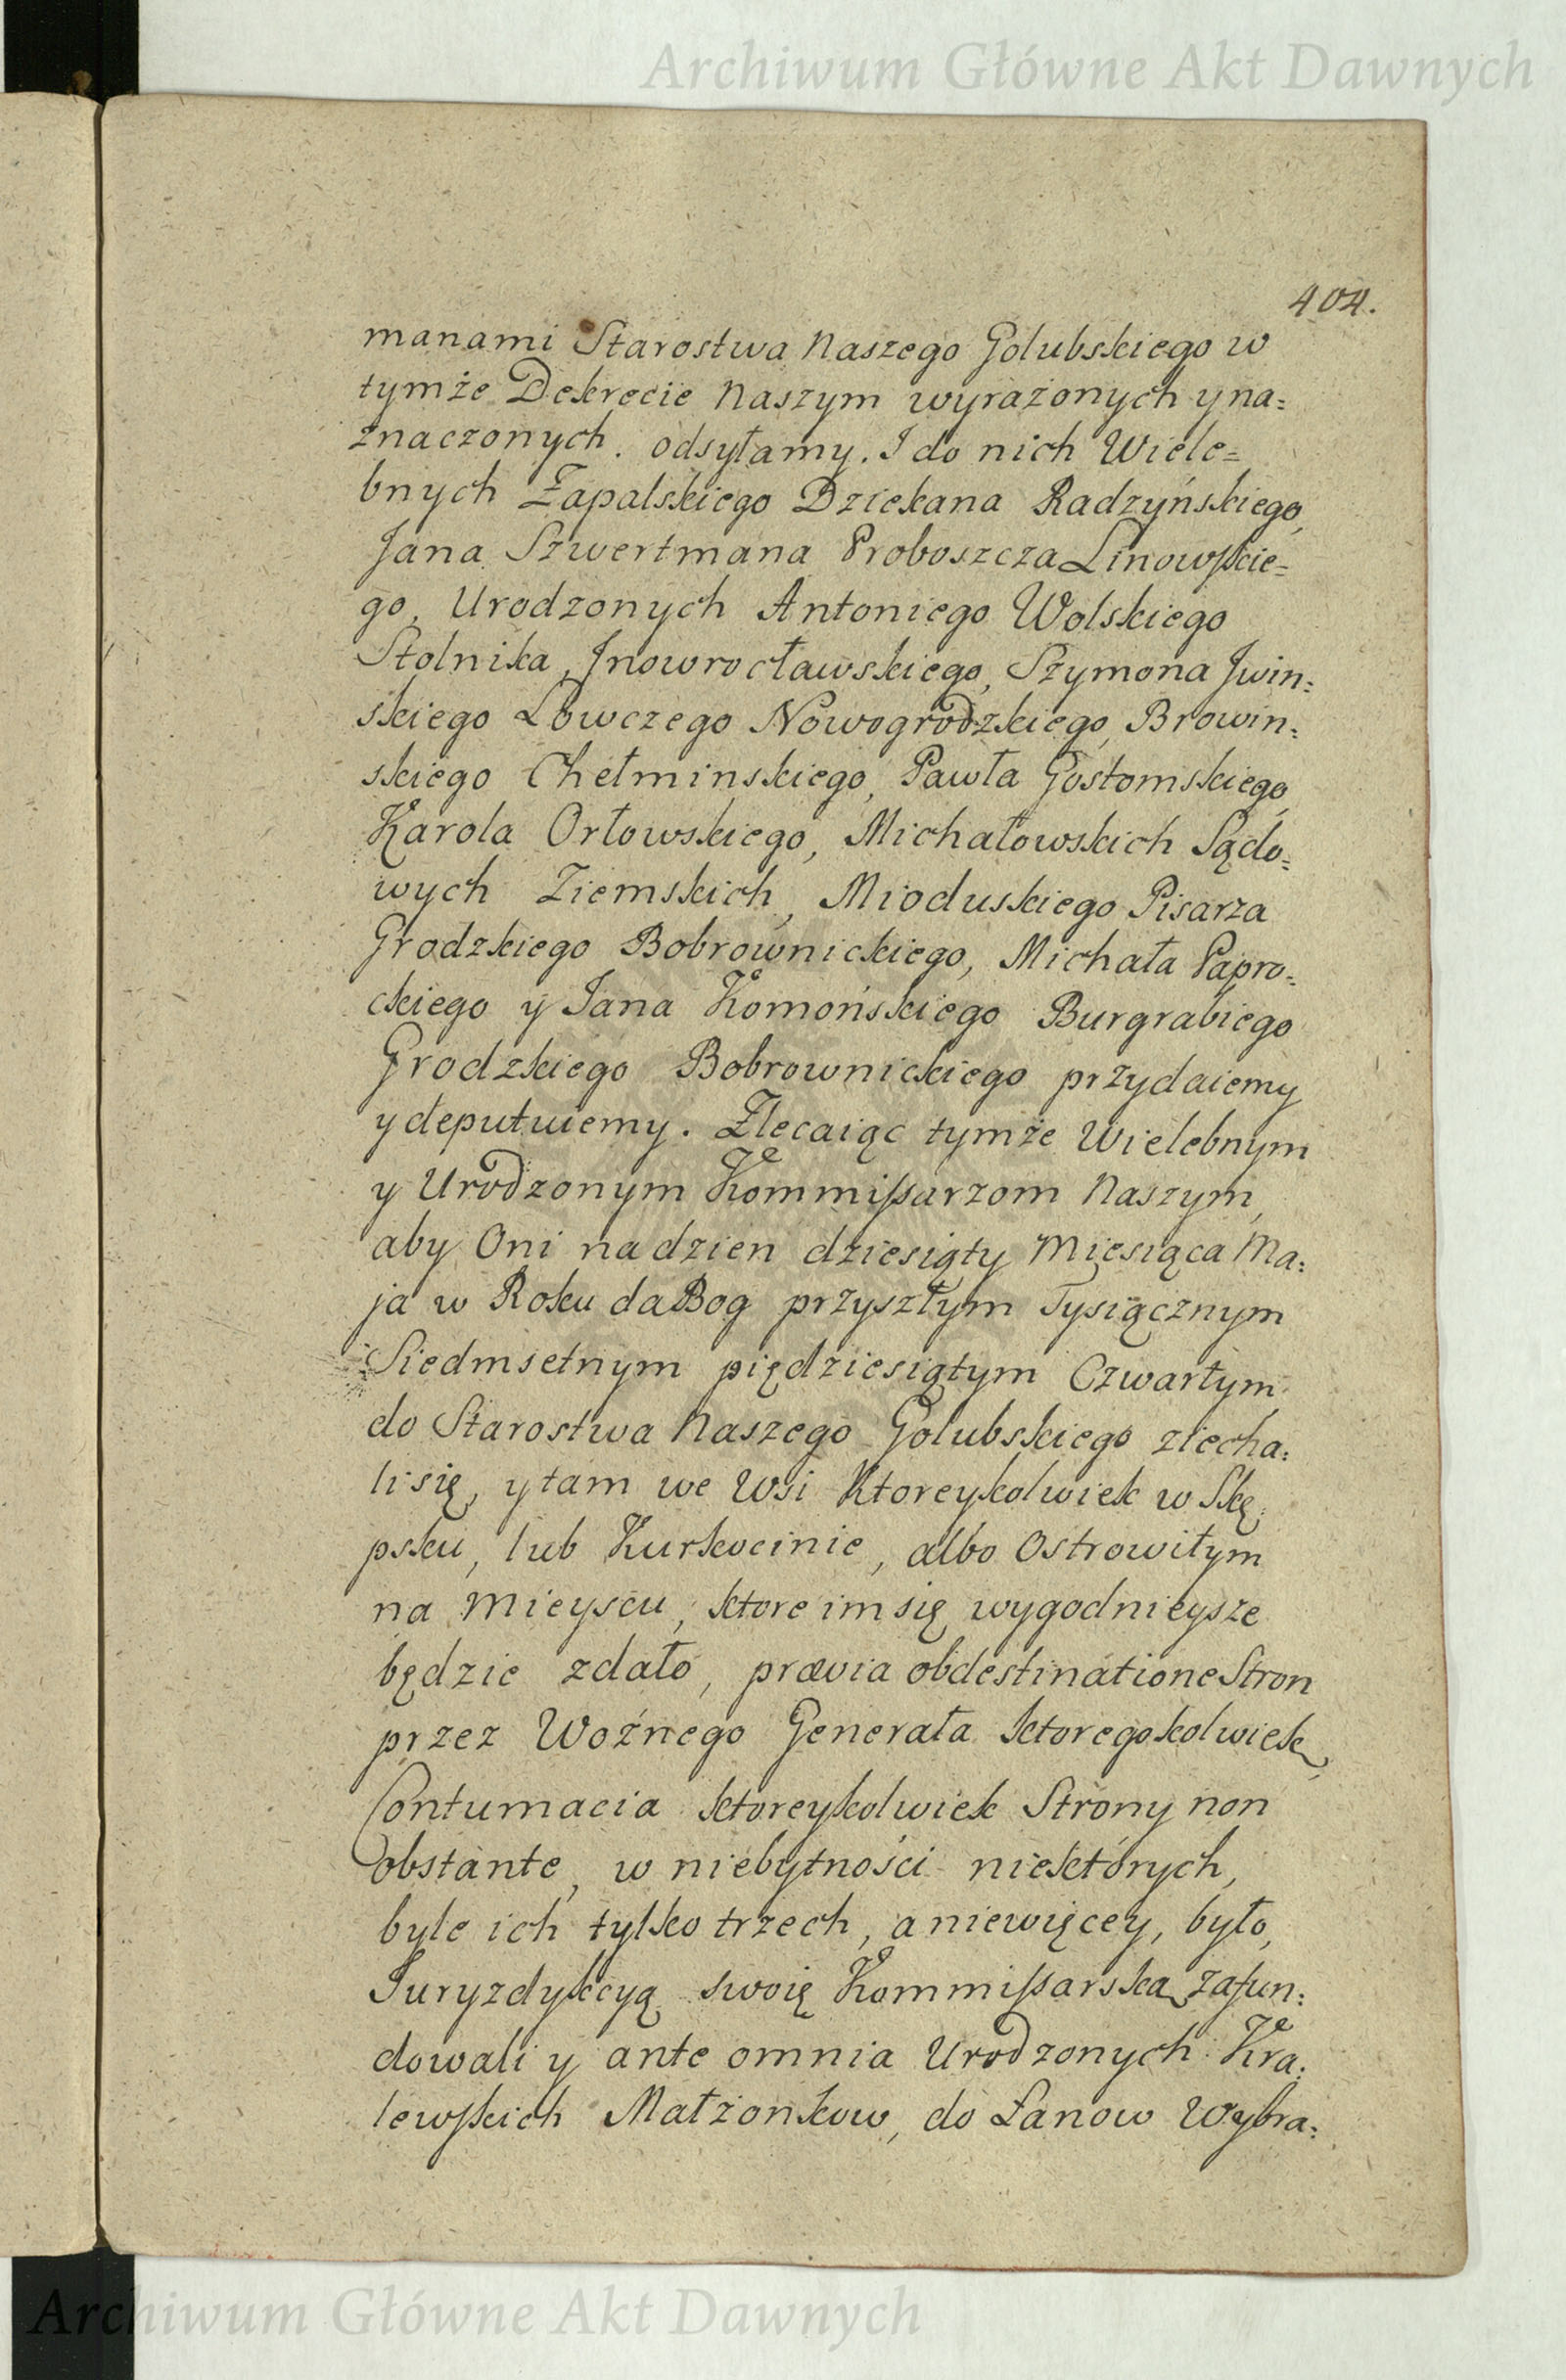 Archiwum Główne Akt Dawnych
404.
manami Starostwa Naszego Golubskiego w
tymże Dekrecie Naszym wyrażonych y na=
znaczonych. odsyłamy. I do nich Wiele=
bnych Łapalskiego Dziekana Radzyńskiego,
Jana Szwertmana Proboszcza Linowskie=
go, Urodzonych Antoniego Wolskiego
Stolnika Jnowrocławskiego, Szymona Jwin=
skiego Łowczego Nowogrodzkiego, Browin=
skiego Chełminskiego, Pawła Gostomskiego,
Karola Orłowskiego, Michałowskich Sądo=
wych Ziemskich, Mioduskiego Pisarza
Grodzkiego Bobrownickiego, Michała Papro=
ckiego y Jana Komońskiego Burgrabiego
Grodzkiego Bobrownickiego przydaiemy
y deputuiemy. Zlecaiąc tymże Wielebnym
y Urodzonym Kommissarzom Naszym,
aby Oni na dzien dziesiąty Miesiąca Ma=
ja w Roku da Bog przyszłym Tysiącznym
Siedmsetnym piędziesiątym Czwartym
do Starostwa Naszego Golubskiego ziecha=
li się, y tam we Wsi Ktoreykolwiek w Skę=
psku, lub Kurkocinie, albo Ostrowitym
na Mieyscu, ktore im się wygodnieysze
będzie zdało, prævia obdestinatione Stron
przez Woźnego Generała ktoregokolwiek,
Contumacia ktoreykolwiek Strony non
obstante, w niebytności niektórych,
byle ich tylko trzech, a niewięcey, było,
Juryzdykcyą swoię Kommissarską zafun=
dowali y ante omnia Urodzonych Kra=
lewskich Małżonkow, do Łanow Wybra=
Archiwum Główne Akt Dawnych